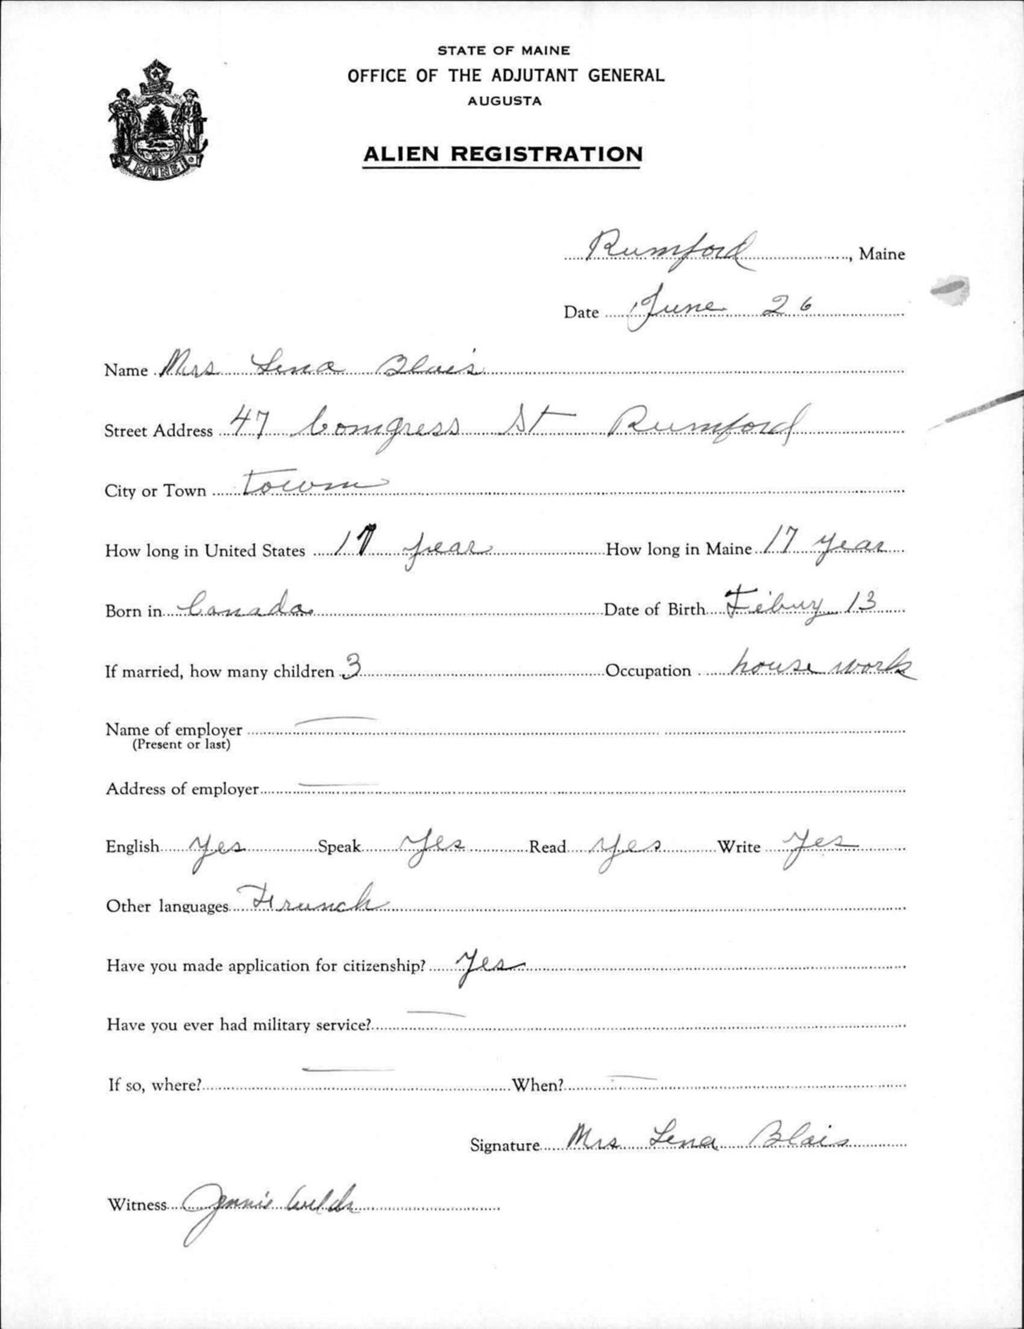 STATE OF MAINE
OFFICE OF THE ADJUTANT GENERAL
AUGUSTA
ALIEN REGISTRATION
MAINE
Rumford, Maine
Date June 26
Name Mrs Lena Blais
Street Address 47 Congress St Rumford
City or Town town
How long in United States 17 year How long in Maine 17 year
Born in Canada Date of Birth Febuy 13
If married, how many children 3 Occupation house work
Name of employer
(Present or last)
Address of employer
English yes Speak yes Read yes Write yes
Other languages Frunch
Have you made application for citizenship? Yes
Have you ever had military service?
If so, where? When?
Signature Mrs Lena Blais
Witness